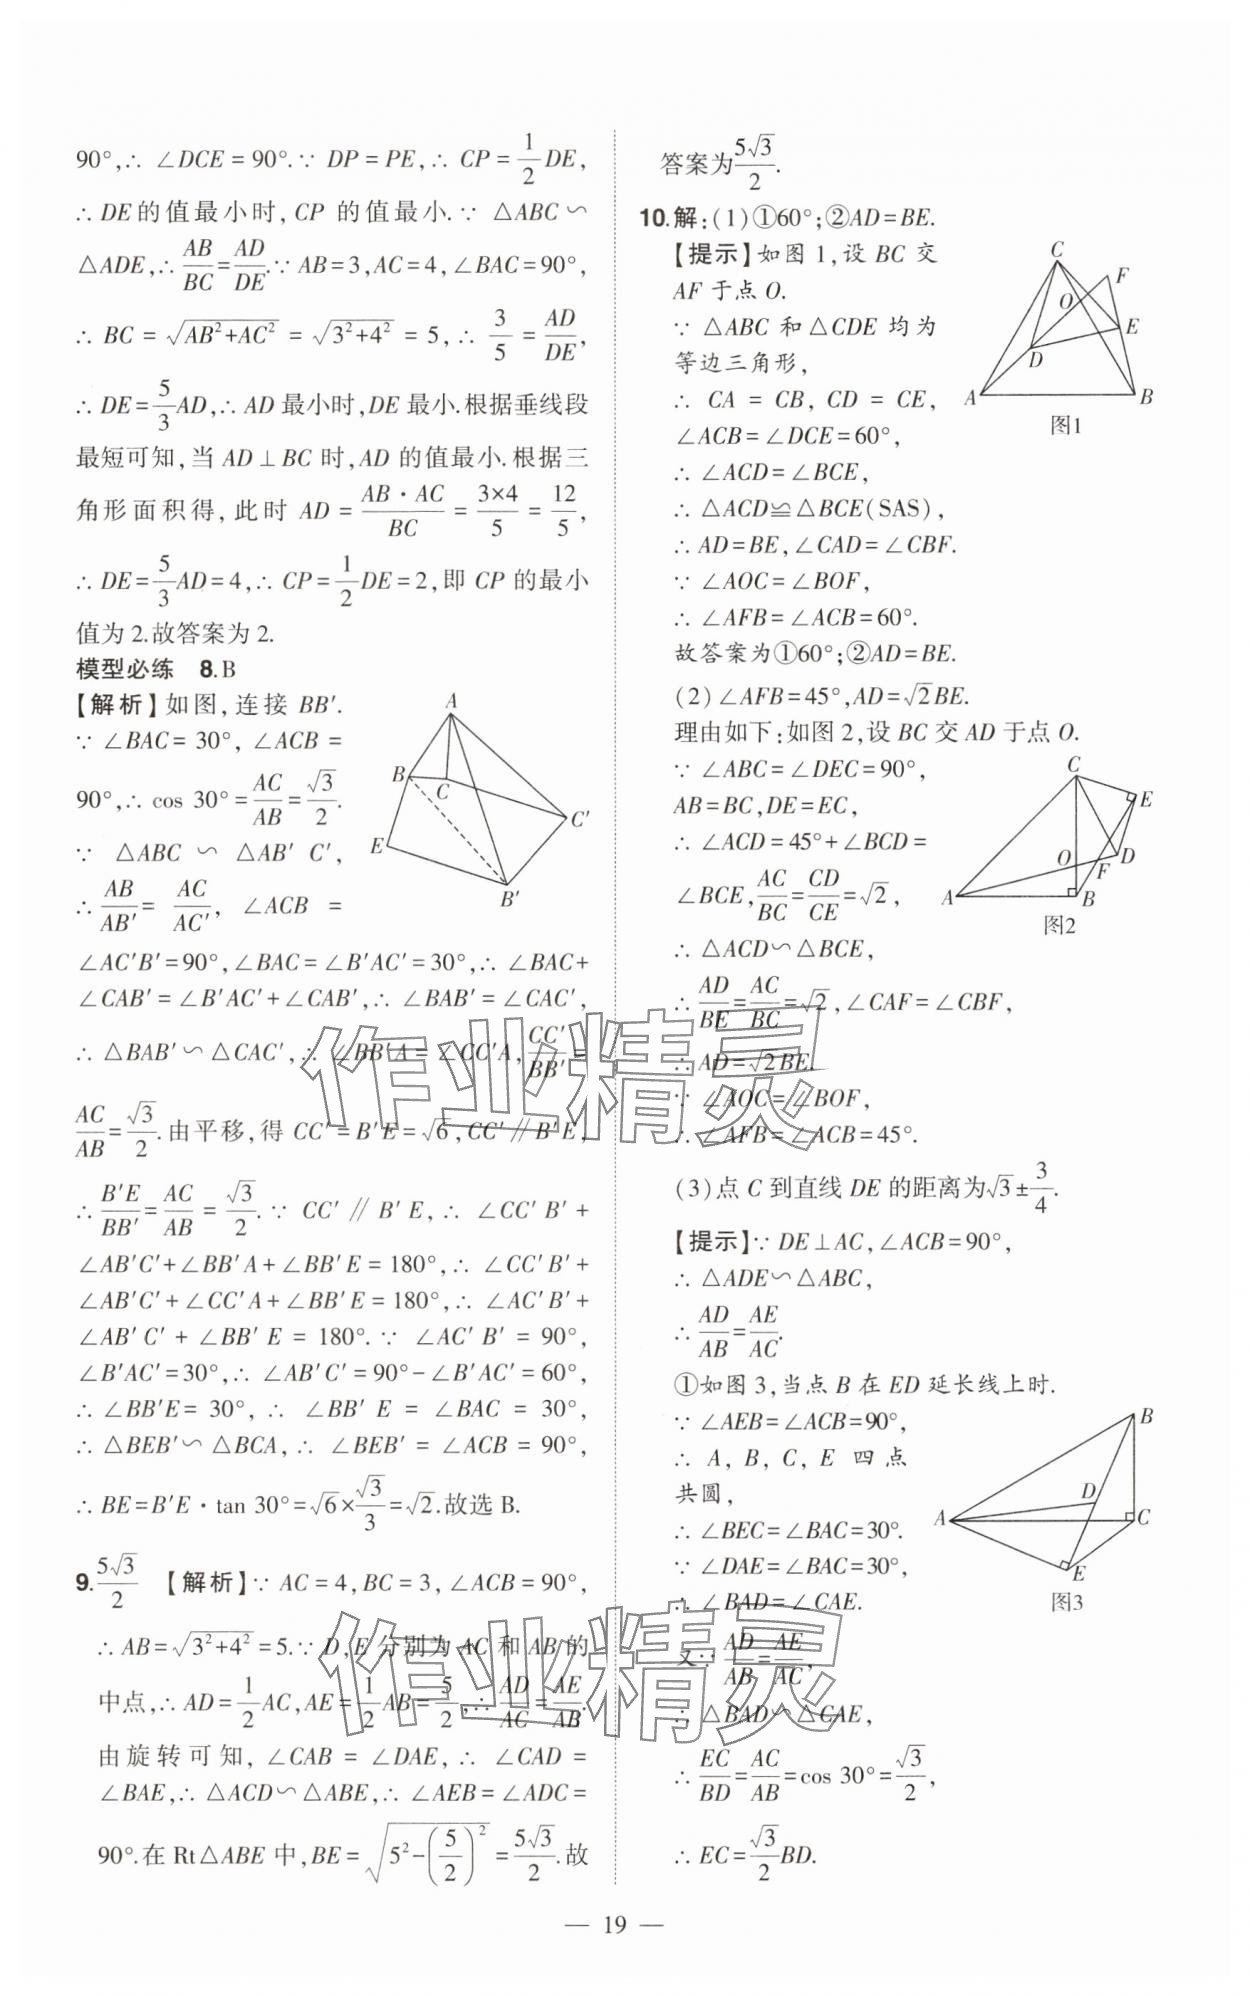 90°,∴ ∠DCE=90°.∵ DP=PE,∴ CP=1/2 DE,
∴ DE的值最小时,CP 的值最小.∵ △ABC∽
△ADE,∴ AB/BC=AD/DE.∵ AB=3,AC=4,∠BAC=90°,
∴ BC=√(AB²+AC²)=√(3²+4²)=5,∴ 3/5=AD/DE,
∴ DE=5/3 AD,∴ AD 最小时,DE 最小.根据垂线段
最短可知,当 AD⊥BC 时,AD 的值最小.根据三
角形面积得,此时 AD=AB·AC/BC=3×4/5=12/5,
∴ DE=5/3 AD=4,∴ CP=1/2 DE=2,即 CP 的最小
值为 2.故答案为 2.
模型必练 8.B
【解析】如图,连接 BB′.
∵ ∠BAC=30°,∠ACB=
90°,∴ cos 30°=AC/AB=√3/2.
∵ △ABC∽△AB′C′,
∴ AB/AB′=AC/AC′,∠ACB=
A
B
C
C′
E
B′
∠AC′B′=90°,∠BAC=∠B′AC′=30°,∴ ∠BAC+
∠CAB′=∠B′AC′+∠CAB′,∴ ∠BAB′=∠CAC′,
∴ △BAB′∽△CAC′,∴ ∠BB′A=∠CC′A,CC′/BB′=
AC/AB=√3/2.由平移,得 CC′=B′E=√6,CC′∥B′E,
∴ B′E/BB′=AC/AB=√3/2.∵ CC′∥B′E,∴ ∠CC′B′+
∠AB′C′+∠BB′A+∠BB′E=180°,∴ ∠CC′B′+
∠AB′C′+∠CC′A+∠BB′E=180°,∴ ∠AC′B′+
∠AB′C′+∠BB′E=180°.∵ ∠AC′B′=90°,
∠B′AC′=30°,∴ ∠AB′C′=90°-∠B′AC′=60°,
∴ ∠BB′E=30°,∴ ∠BB′E=∠BAC=30°,
∴ △BEB′∽△BCA,∴ ∠BEB′=∠ACB=90°,
∴ BE=B′E·tan 30°=√6×√3/3=√2.故选 B.
9. 5√3/2 【解析】∵ AC=4,BC=3,∠ACB=90°,
∴ AB=√(3²+4²)=5.∵ D,E 分别为 AC 和 AB 的
中点,∴ AD=1/2 AC,AE=1/2 AB=5/2,∴ AD/AC=AE/AB.
由旋转可知,∠CAB=∠DAE,∴ ∠CAD=
∠BAE,∴ △ACD∽△ABE,∴ ∠AEB=∠ADC=
90°.在 Rt△ABE 中,BE=√(5²-(5/2)²)=5√3/2.故
答案为 5√3/2.
10.解:(1)①60°;②AD=BE.
【提示】如图 1,设 BC 交
AF 于点 O.
∵ △ABC 和△CDE 均为
等边三角形,
∴ CA=CB,CD=CE,
∠ACB=∠DCE=60°,
C
F
O
E
D
A
B
图1
∴ ∠ACD=∠BCE,
∴ △ACD≌△BCE(SAS),
∴ AD=BE,∠CAD=∠CBF.
∵ ∠AOC=∠BOF,
∴ ∠AFB=∠ACB=60°.
故答案为①60°;②AD=BE.
(2)∠AFB=45°,AD=√2BE.
理由如下:如图 2,设 BC 交 AD 于点 O.
∵ ∠ABC=∠DEC=90°,
AB=BC,DE=EC,
∴ ∠ACD=45°+∠BCD=
∠BCE,AC/BC=CD/CE=√2,
C
E
O
D
F
A
B
图2
∴ △ACD∽△BCE,
∴ AD/BE=AC/BC=√2,∠CAF=∠CBF,
∴ AD=√2BE.
∵ ∠AOC=∠BOF,
∴ ∠AFB=∠ACB=45°.
(3)点 C 到直线 DE 的距离为√3±3/4.
【提示】∵ DE⊥AC,∠ACB=90°,
∴ △ADE∽△ABC,
∴ AD/AB=AE/AC.
①如图 3,当点 B 在 ED 延长线上时.
∵ ∠AEB=∠ACB=90°,
∴ A,B,C,E 四点
共圆,
∴ ∠BEC=∠BAC=30°.
∵ ∠DAE=∠BAC=30°,
∴ ∠BAD=∠CAE.
B
D
A
C
E
图3
又∵ AD/AB=AE/AC,
∴ △BAD∽△CAE,
∴ EC/BD=AC/AB=cos 30°=√3/2,
∴ EC=√3/2 BD.
作业精灵
作业精灵
— 19 —